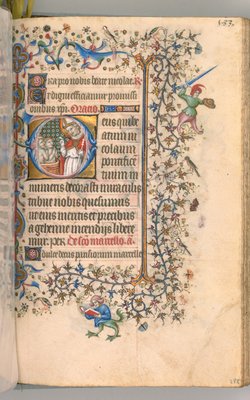 153.
Ora pro nobis beate nicolae. R
Ut digni efficiamur promissi
onibus xpi. Oratio.
Deus qui be
atum ni
colaum
pontifice
tuum in
numeris decorasti miraculis
tribue nobis quesumus
ut eius meritis et precibus
a gehenne incendijs libere
mur. per. De sco marcello. a.
O dulce decus parisiorum marcelle